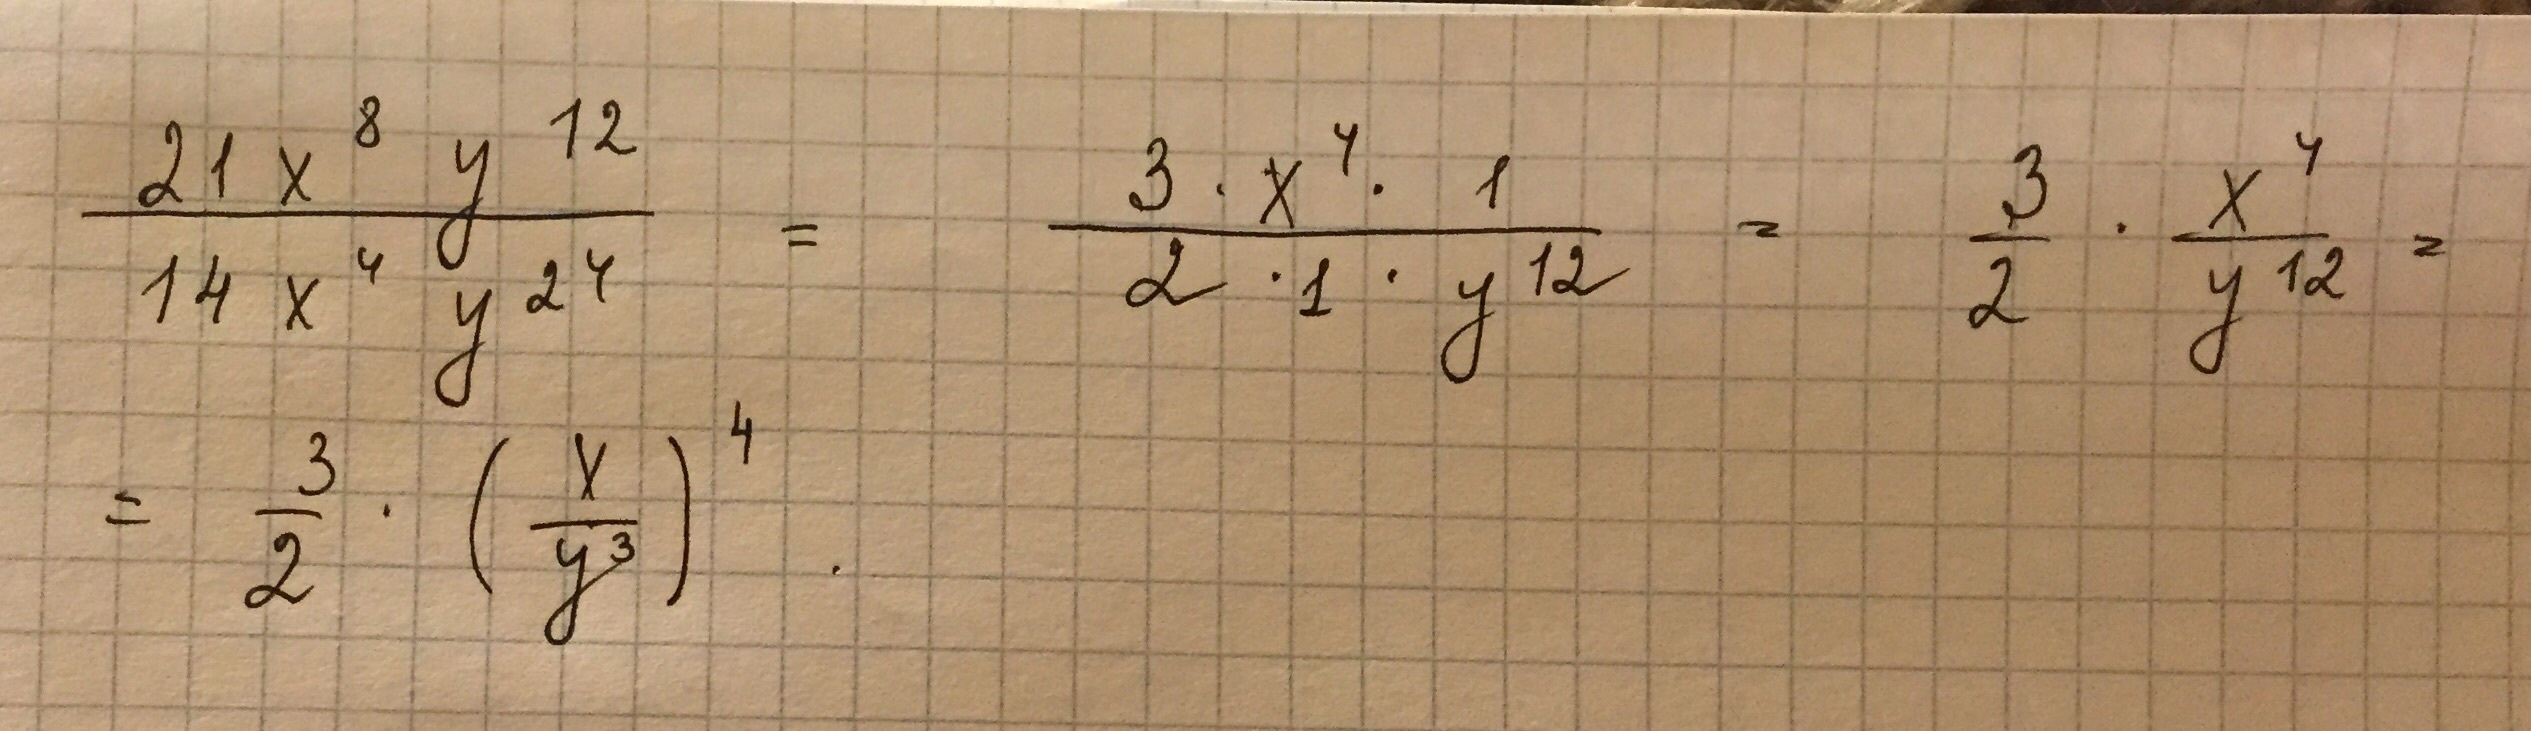 \frac{21 x^8 y^{12}}{14 x^4 y^{24}} = \frac{3 \cdot x^4 \cdot 1}{2 \cdot 1 \cdot y^{12}} = \frac{3}{2} \cdot \frac{x^4}{y^{12}} =
= \frac{3}{2} \cdot \left( \frac{x}{y^3} \right)^4 .